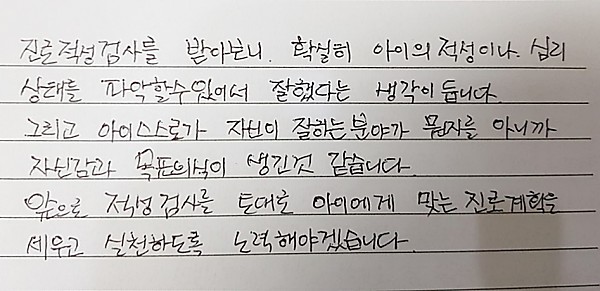 진로적성검사를 받아보니. 확실히 아이의 적성이나. 심리
상태를 파악할수있어서 잘했다는 생각이 듭니다.
그리고 아이스스로가 자신이 잘하는분야가 뭔지를 아니까
자신감과 목표의식이 생긴것 같습니다.
앞으로 적성검사를 토대로 아이에게 맞는 진로계획을
세우고 실천하도록 노력해야겠습니다.